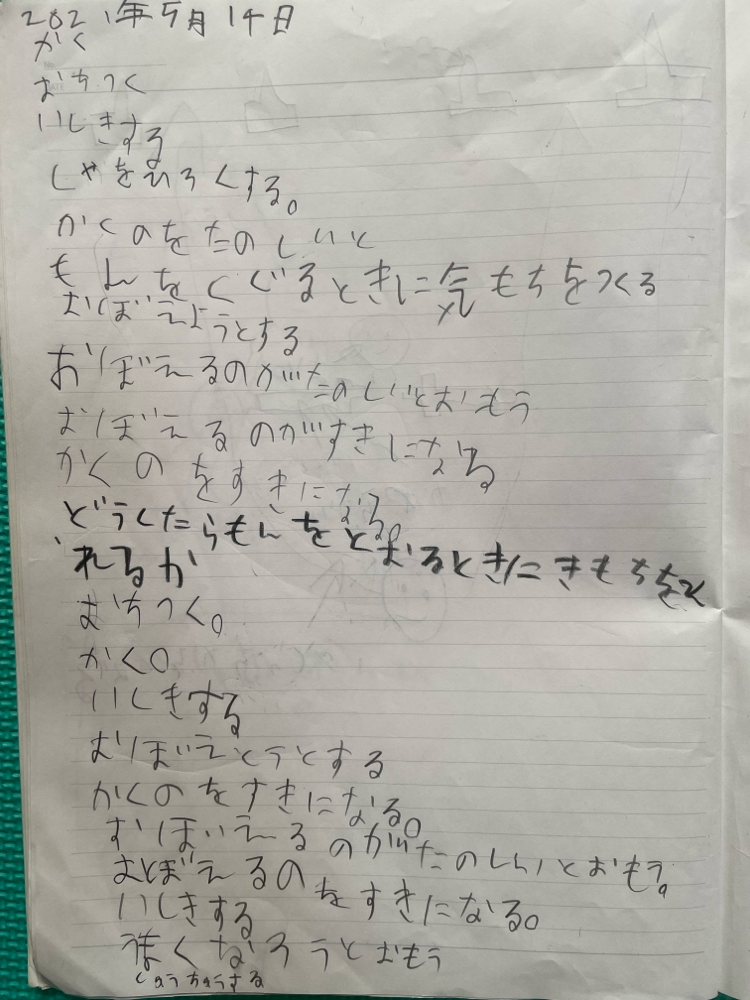 2021年5月14日
かく
おちつく
いしきする
しやをひろくする。
かくのをたのしいと
もんをくぐるときに気もちをつくる
おぼえようとする
おぼえるのがたのしいとおもう
おぼえるのがすきになる
かくのをすきになる。
どうくたらもんをとおるときにきもちをつ
れるか
おちつく。
かく。
いしきする
おぼえとうとする
かくのをすきになる。
おぼえるのがたのしいとおもう。
おぼえるのをすきになる。
いしきする
強くなろうとおもう